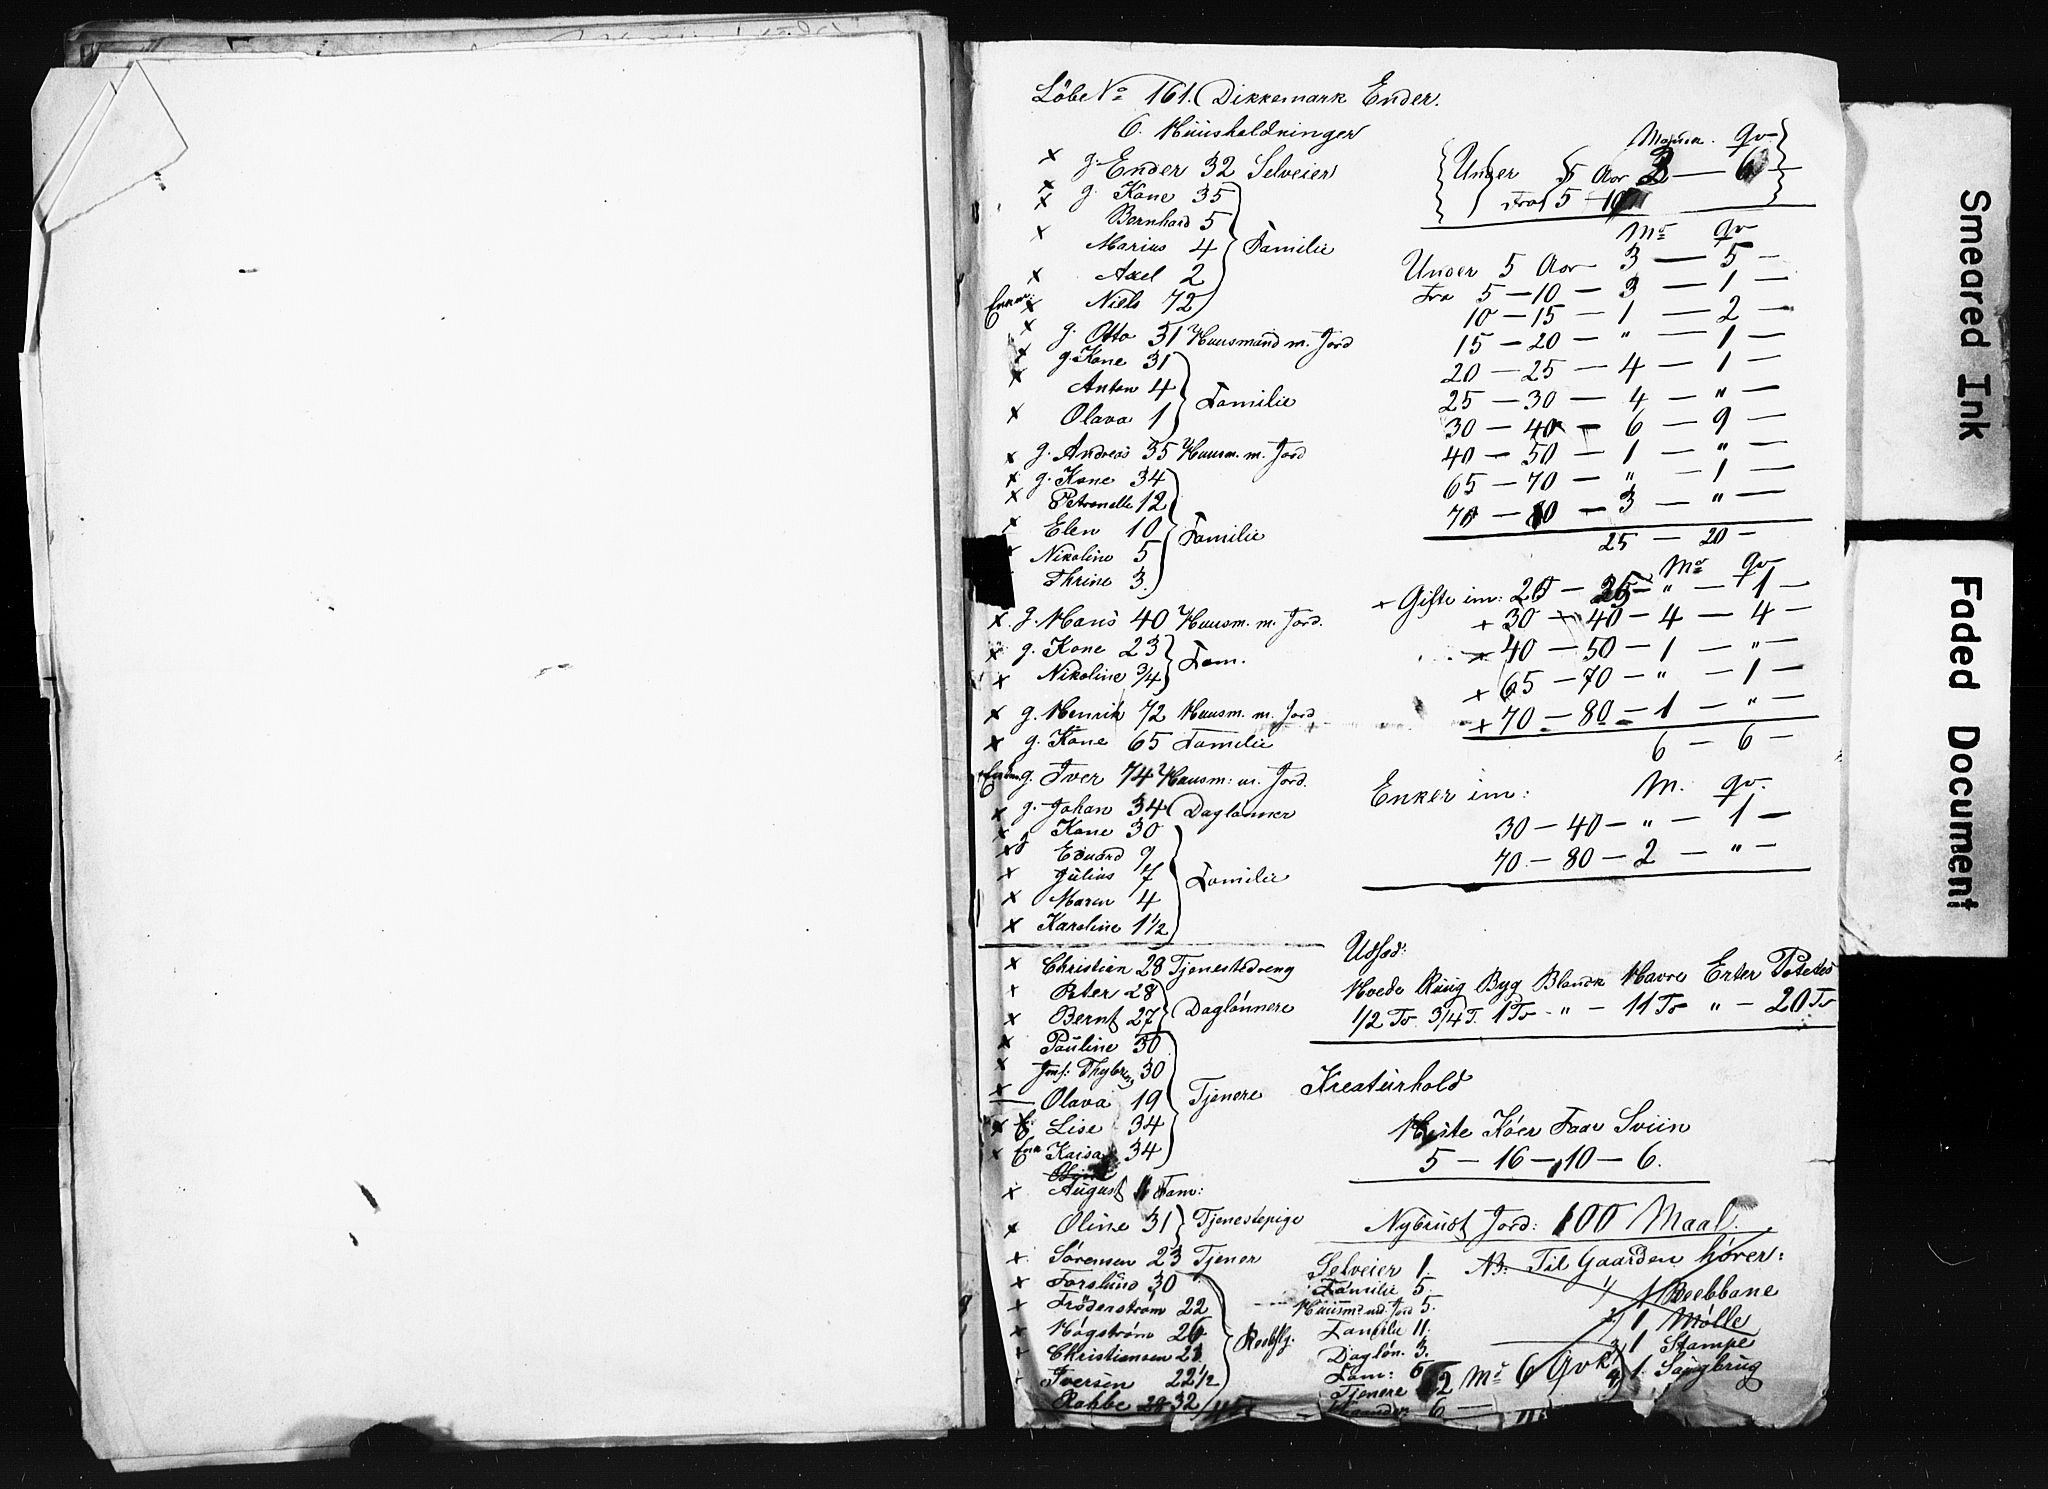 Löbe No 161. Dikkemark Ender.
6. Huusholdninger
x g. Ender 32 Selveier
x g. Kone 35
x Bernhard 5
x Marius 4 Familie
x Axel 2
x Niels 72
x g. Otto 31 Huusmand m. Jord
x g. Kone 31
x Anton 4 Familie
x Olava 1
x g. Andreas 35 Huusm. m. Jord
x g. Kone 34
x Petronelle 12
x Elen 10 Familie
x Nikoline 5
Thrine 3.
x g. Hans 40 Huusm. m. Jord.
x g. Kone 23
x Nikoline 3/4 Fam.
x g. Henrik 72 Huusm. m. Jord
x g. Kone 65 Familie
g. Iver 74 Huusm: m. Jord.
x g. Johan 34 Daglønner
x Kone 30
x Eduard 9
x Julius 7 Familie
x Maren 4
x Karoline 1 1/2
x Christian 28 Tjenestedreng
x Peter 28
x Bernt 27 Daglønnere
x Pauline 30
x Jmf: Thybring 30
x Olava 19 Tjenere
x Lise 34
x Enk Kaisa 34
x August Fam:
x Oline 31 Tjenestepige
x Sørensen 23 Tjener
x Forslund 30
x Fröderström 22
x Høgström 26
x Christiansen 23
Iversen 22 1/2
Rohbe 28 32
Mand. Qv
Under 5 Aar 3 — 6 —
Fra 5 — 10
M Qv
Under 5 Aar 3 — 5 —
Fra 5 — 10 — 3 — 1 —
10 — 15 — 1 — 2 —
15 — 20 — " — 1 —
20 — 25 — 4 — 1 —
25 — 30 — 4 — " —
30 — 40 — 6 — 9 —
40 — 50 — 1 — " —
65 — 70 — " — 1 —
70 — 80 — 3 — " —
25 — 20 —
M Qv
+ Gifte im: 20 — 25 — " — 1 —
+ 30 — 40 — 4 — 4 —
x 40 — 50 — 1 — " —
+ 65 — 70 — " — 1 —
+ 70 — 80 — 1 — " —
6 — 6 —
Enker im: M. Qv.
30 — 40 — " — 1 —
70 — 80 — 2 — " —
Udsæd:
Hvede Ruug Byg Blandk Havre Erter Poteter
1/2 Tø 3/4 T. 1 Tø " — 11 Tø " — 20 Tø
Kreaturhold
Heste Køer Faar Sviin
5 — 16 — 10 — 6.
Nybrudt Jord: 100 Maal.
Selveier 1. NB: Til Gaarden hører:
Familie 5. 1 Reebbane
Huusm. md. Jord 5.
Familie 11. 1 Mølle
Dagløn. 3. 1 Stampe
Fam: 6 1. Saugbrug
Tjenere 2 M 6 Qvk
6 —
Smeared Ink
Faded Document